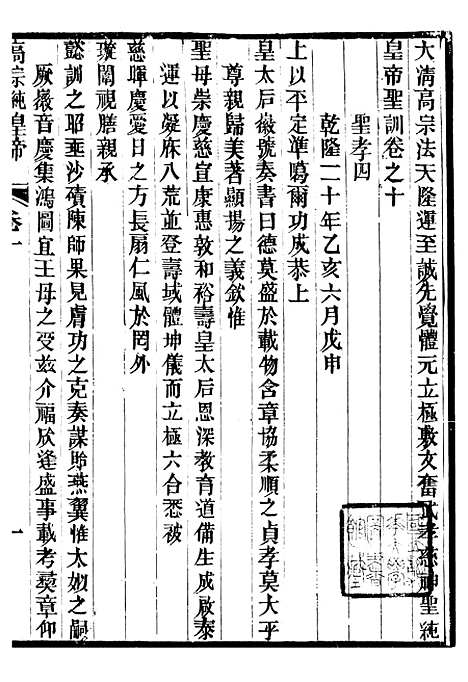 大清高宗法天隆運至誠先覺體元立極敷文奮武孝慈神聖純
皇帝聖訓卷之十
聖孝四
乾隆二十年乙亥六月戊申
上以平定準噶爾功成恭上
皇太后徽號奏書曰德莫盛於載物含章協柔順之貞孝莫大乎
尊親歸美著顯揚之義欽惟
聖母崇慶慈宣康惠敦和裕壽皇太后恩深教育道備生成啟泰
運以凝庥八荒並登壽域體坤儀而立極六合悉被
慈暉慶愛日之方長扇仁風於罔外
璇闈視膳親承
懿訓之昭垂沙磧陳師果見膚功之克奏謀貽燕翼惟太姒之嗣
厥徽音慶集鴻圖宜王母之受玆介福欣逢盛事載考彝章仰
高宗純皇帝 卷十 一